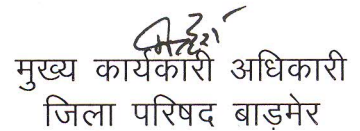 मुख्य कार्यकारी अधिकारी
जिला परिषद बाड़मेर